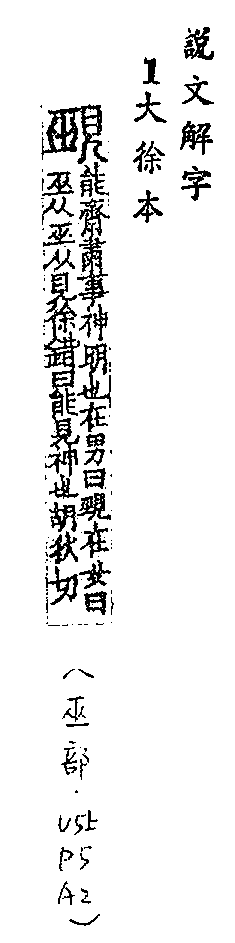 說文解字
1大徐本
覡 能齋肅事神明也在男曰覡在女曰
巫从巫从見徐鍇曰能見神也胡狄切
(巫部.V5上P5A2)